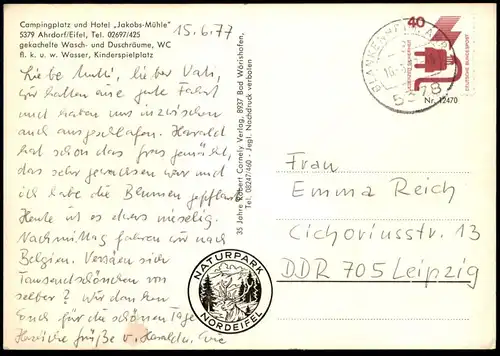 Campingplatz und Hotel „Jakobs-Mühle"
5379 Ahrdorf/Eifel, Tel. 02697/425
gekachelte Wasch- und Duschräume, WC
fl. k. u. w. Wasser, Kinderspielplatz
15.6.77
Liebe Mutti, lieber Vati,
wir hatten eine gute Fahrt
und haben uns inzwischen
auch ausgeschlafen. Harald
hat schon das Gras gemäht,
das sehr gewachsen war und
ich habe die Blumen gepflanzt.
Heute ist es etwas nieselig.
Nachmittag fahren wir nach
Belgien. Verseien sich
Tausendschönchen von
selber? Wir danken
Euch für die schönen Tage
Herzliche Grüße v. Harald u.
35 Jahre Robert Cornely Verlag, 8937 Bad Wörishofen,
Tel. 08247/460 - Jegl. Nachdruck verboten
NATURPARK
NORDEIFEL
BLANKENHEIM, AHR
5378
40
DEUTSCHE BUNDESPOST
Nr. 12470
Frau
Emma Reich
Cichoriusstr. 13
DDR 705 Leipzig